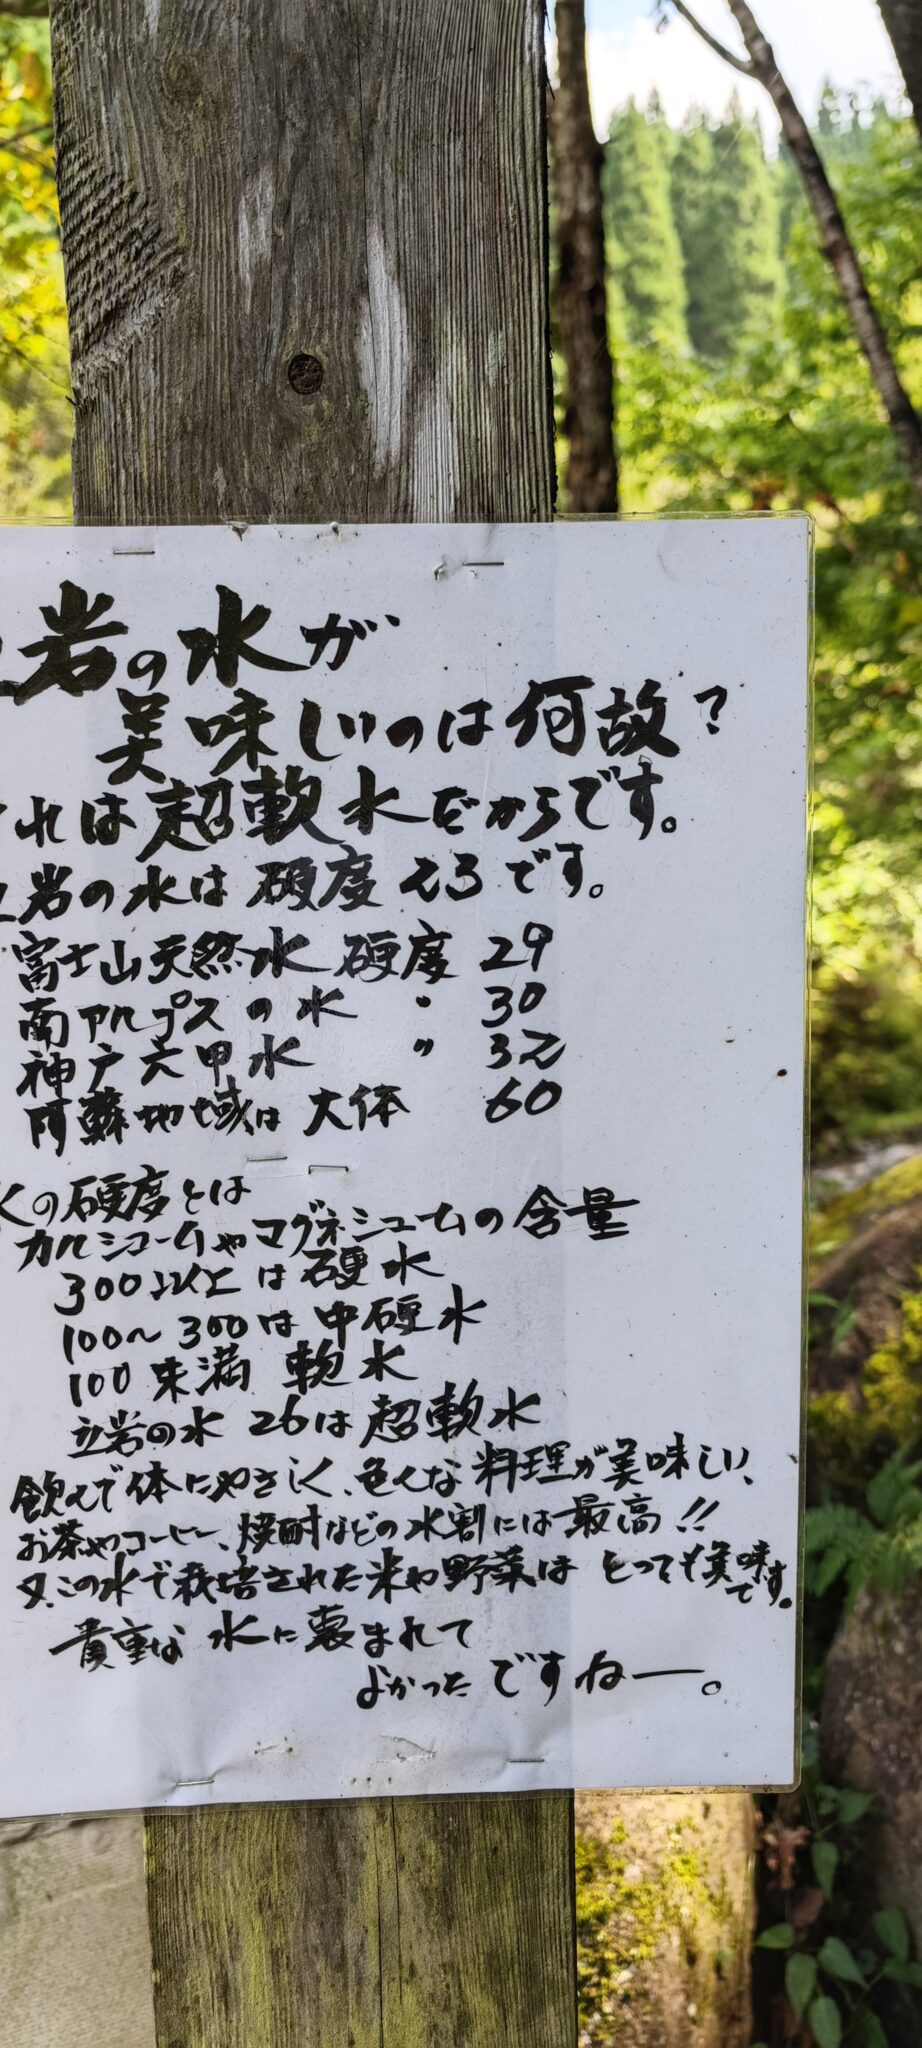 岩の水が
美味しいのは何故？
れは超軟水だからです。
岩の水は硬度23です。
富士山天然水 硬度 29
南アルプスの水 〃 30
神戸六甲水 〃 32
阿蘇地域は大体 60
水の硬度とは
カルシュームやマグネシュームの含量
300以上は硬水
100～300は中硬水
100未満 軟水
立岩の水 26は超軟水
飲んで体にやさしく、色んな料理が美味しい、
お茶やコーヒー、焼酎などの水割には最高!!
又、この水で栽培された米や野菜はとっても美味です。
貴重な水に恵まれて
よかったですねー。